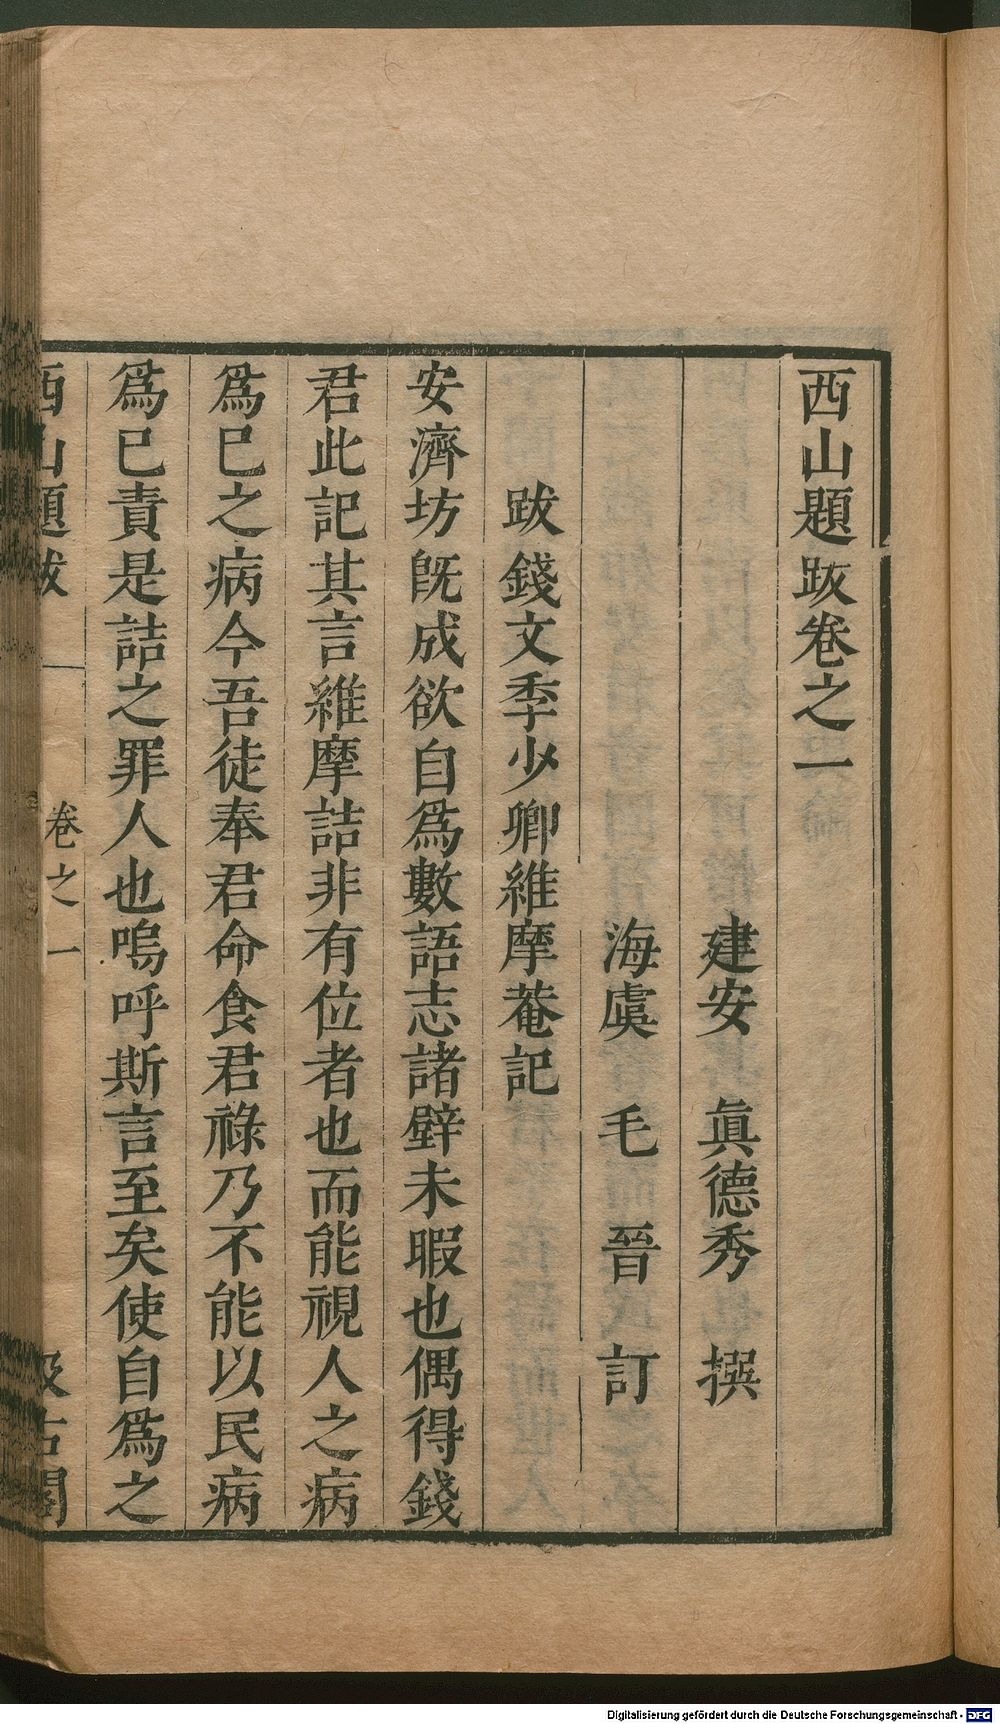 西山題跋卷之一
建安 眞德秀 撰
海虞 毛 晉 訂
跋錢文季少卿維摩菴記
安濟坊旣成欲自爲數語志諸壁未暇也偶得錢
君此記其言維摩詰非有位者也而能視人之病
爲已之病今吾徒奉君命食君祿乃不能以民病
爲已責是詰之罪人也嗚呼斯言至矣使自爲之
西山題跋 卷之一 汲古閣
Digitalisierung gefördert durch die Deutsche Forschungsgemeinschaft - DFG